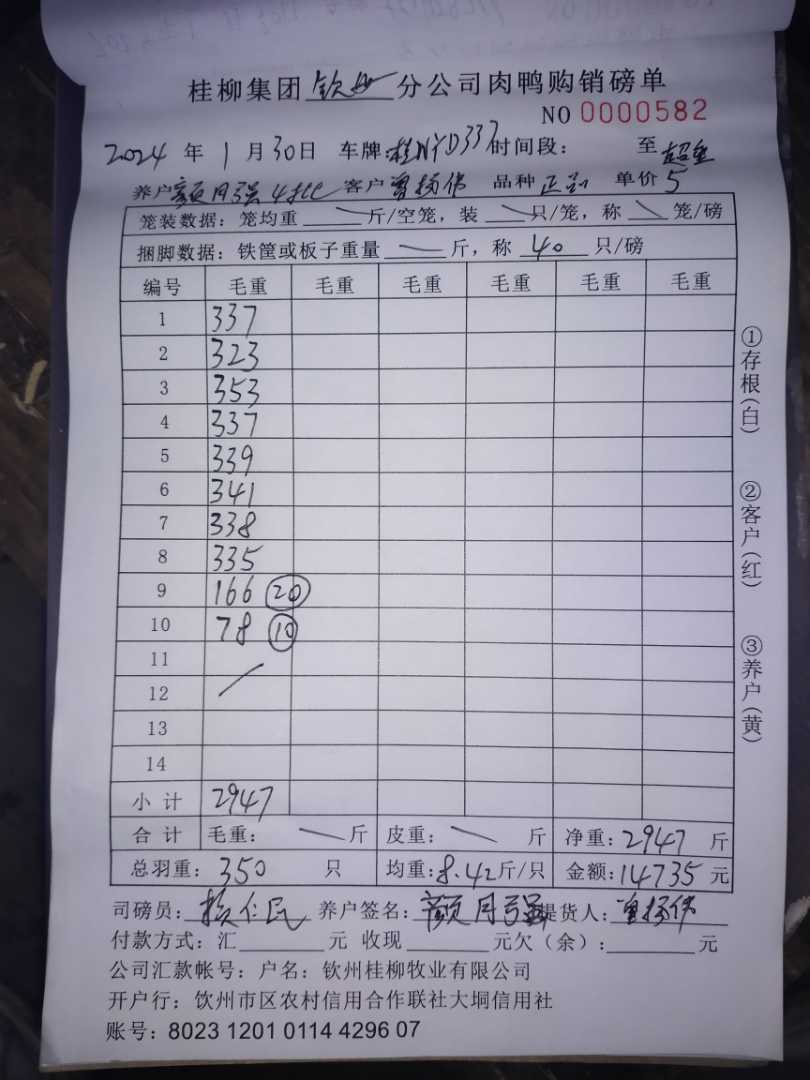 桂柳集团 钦州 分公司肉鸭购销磅单
NO 0000582
2024 年 1 月 30日 车牌:桂NYD337时间段: 至
养户 颜月强 4批 客户 曾扬伟 品种 正品 单价 5
笼装数据: 笼均重 斤/空笼, 装 只/笼, 称 笼/磅
捆脚数据: 铁筐或板子重量 斤, 称 40 只/磅
编号 毛重 毛重 毛重 毛重 毛重 毛重
1 337
2 323
3 353
4 337
5 339
6 341
7 338
8 335
9 166 20
10 78 10
11
12
13
14
小 计 2947
合 计 毛重: 斤 皮重: 斤 净重: 2947 斤
总羽重: 350 只 均重: 8.42 斤/只 金额: 14735 元
司磅员: 仁民 养户签名: 颜月强 提货人: 曾扬伟
付款方式: 汇 元 收现 元欠(余): 元
公司汇款帐号: 户名: 钦州桂柳牧业有限公司
开户行: 钦州市区农村信用合作联社大垌信用社
账号: 8023 1201 0114 4296 07
①存根(白) ②客户(红) ③养户(黄)